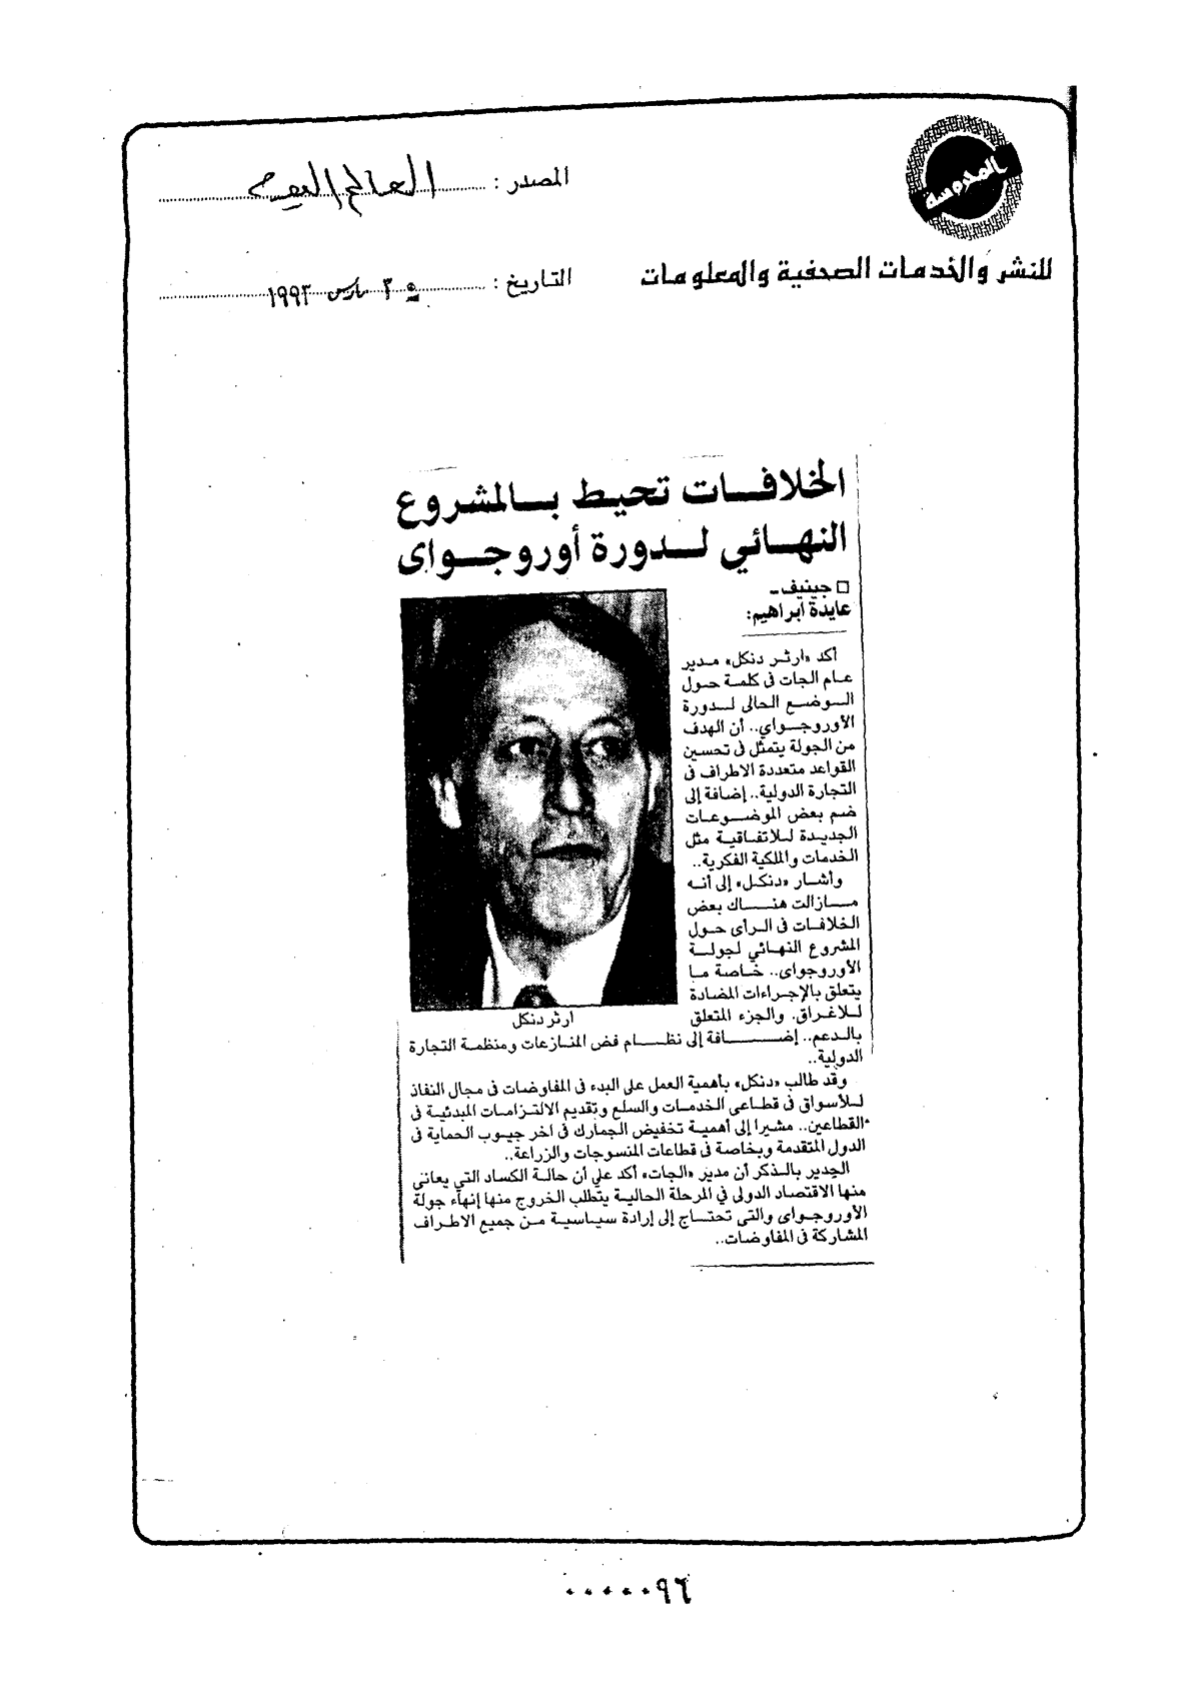 المصدر : العالم اليوم
للنشر والخدمات الصحفية والمعلومات
التاريخ : مارس ١٩٩٣
الخلافات تحيط بالمشروع
النهائي لدورة أوروجواى
□ جينيف ـ
عايدة ابراهيم:
أكد «ارثر دنكل» مدير
عام الجات فى كلمة حول
الوضع الحالى لدورة
الأوروجواي.. أن الهدف
من الجولة يتمثل فى تحسين
القواعد متعددة الاطراف فى
التجارة الدولية.. إضافة إلى
ضم بعض الموضوعات
الجديدة للاتفاقية مثل
الخدمات والملكية الفكرية..
وأشار «دنكل» إلى أنه
مازالت هناك بعض
الخلافات فى الرأى حول
المشروع النهائي لجولة
الأوروجواى.. خاصة ما
يتعلق بالإجراءات المضادة
للاغراق. والجزء المتعلق
ارثر دنكل
بالدعم.. إضافة إلى نظام فض المنازعات ومنظمة التجارة
الدولية..
وقد طالب «دنكل» بأهمية العمل على البدء فى المفاوضات فى مجال النفاذ
للأسواق فى قطاعى الخدمات والسلع وتقديم الالتزامات المبدئية فى
القطاعين.. مشيرا إلى أهمية تخفيض الجمارك فى اخر جيوب الحماية فى
الدول المتقدمة وبخاصة فى قطاعات المنسوجات والزراعة..
الجدير بالذكر أن مدير «الجات» أكد علي أن حالة الكساد التي يعانى
منها الاقتصاد الدولى في المرحلة الحالية يتطلب الخروج منها إنهاء جولة
الأوروجواى والتى تحتاج إلى إرادة سياسية من جميع الاطراف
المشاركة فى المفاوضات..
٠٠٠٠٠٩٦